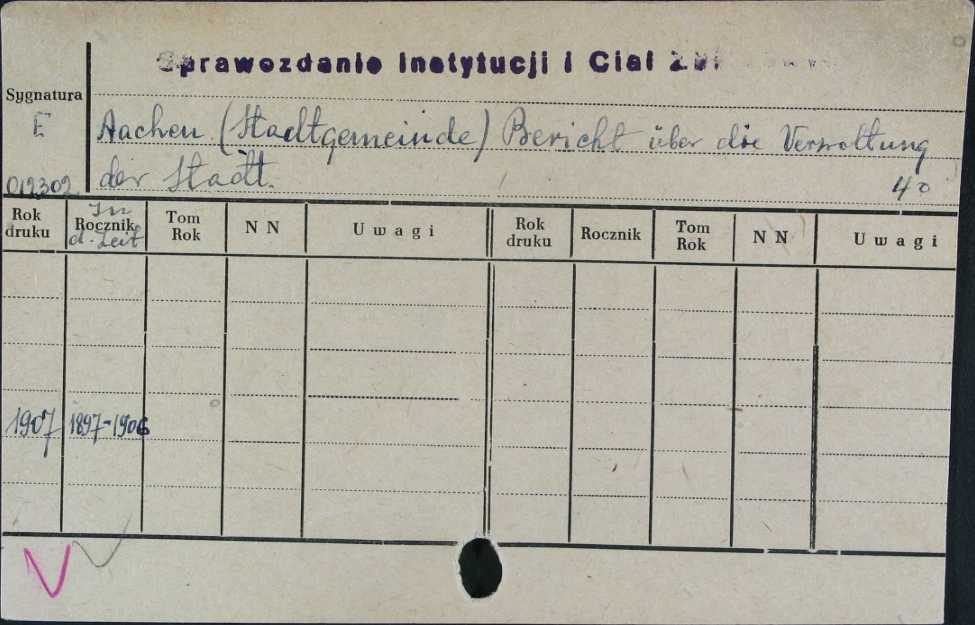 Sprawozdanie Instytucji i Ciał
Sygnatura
E
012302
Aachen (Stadtgemeinde) Bericht über die Verwaltung
der Stadt. 4o
Rok druku In Rocznik d. Zeit Tom Rok N N U w a g i Rok druku Rocznik Tom Rok N N U w a g i
1907 1897-1906